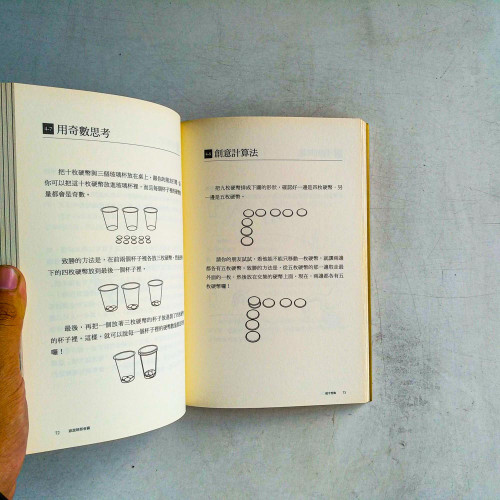 4-7 用奇數思考
把十枚硬幣與三個玻璃杯放在桌上，
你可以把這十枚硬幣放進玻璃杯裡，而且每個杯子裡的硬幣
量都會是奇數。
致勝的方法是，在前兩個杯子裡各放三枚硬幣，
下的四枚硬幣放到最後一個杯子裡。
最後，再把一個放著三枚硬幣的杯子放進
的杯子裡，這樣，就可以說每一個杯子裡的硬幣數
囉！
72
4-8 創意計算法
把九枚硬幣排成下圖的形狀，確認好一邊是四枚硬幣，另
一邊是五枚硬幣。
請你的朋友試試，看他能不能只移動一枚硬幣，就讓兩邊
都各有五枚硬幣。致勝的方法是，從五枚硬幣的那一邊取走最
外面的一枚，然後放在交集的硬幣上面，現在，兩邊都各有五
枚硬幣囉！
73